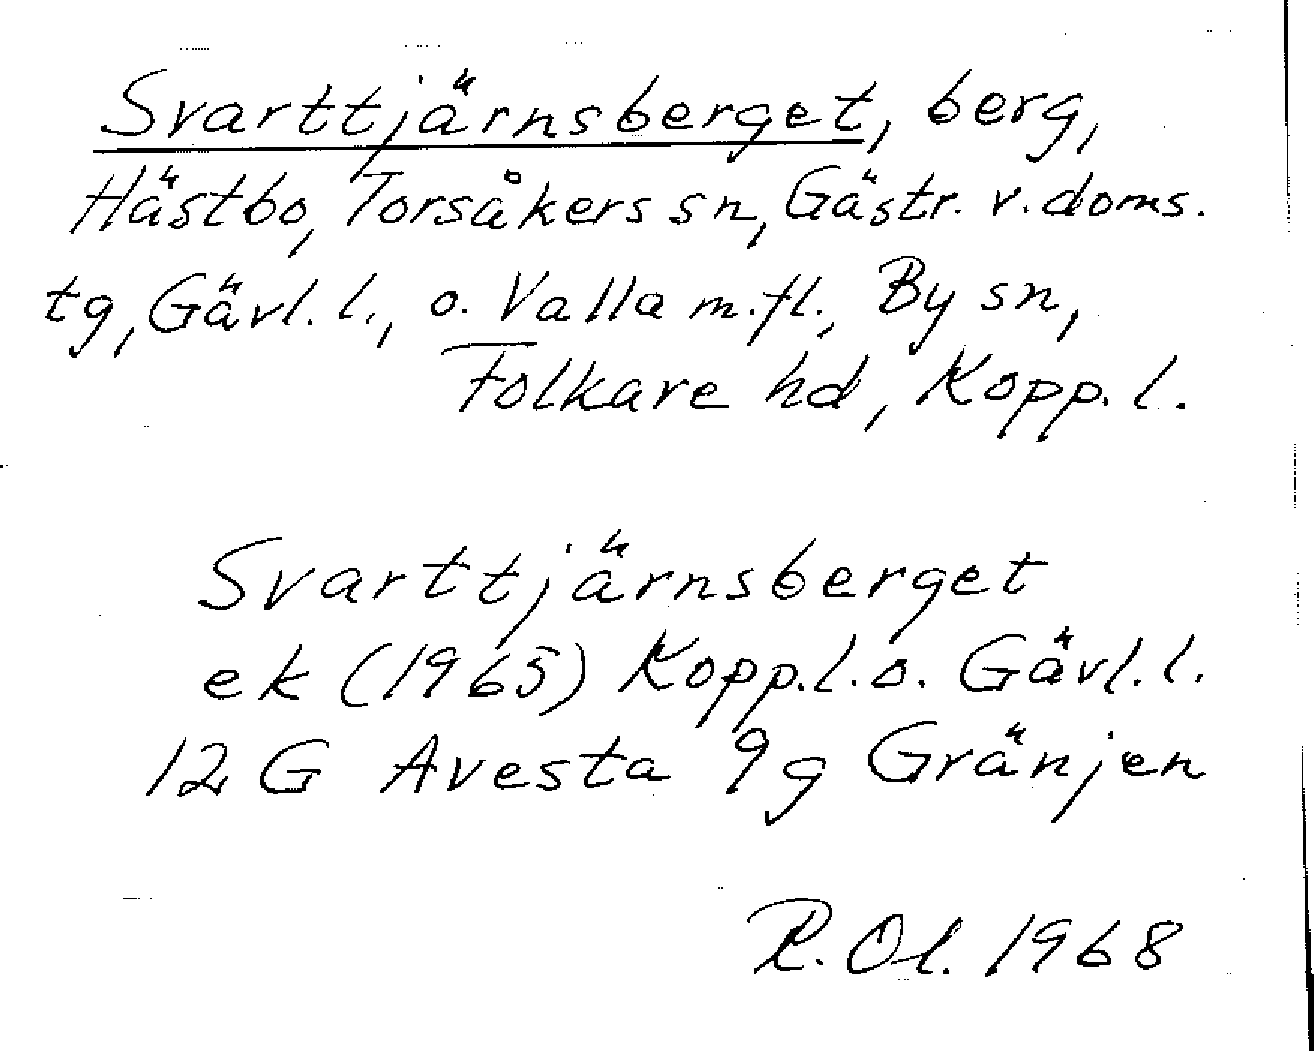 Svarttjärnsberget, berg,
Hästbo, Torsåkers sn, Gästr. v. doms.
tg, Gävl. l., o. Valla m.fl., By sn,
Folkare hd, Kopp. l.
Svarttjärnsberget
ek (1965) Kopp.l. o. Gävl. l.
12 G Avesta 9g Gränjen
R. Ol. 1968